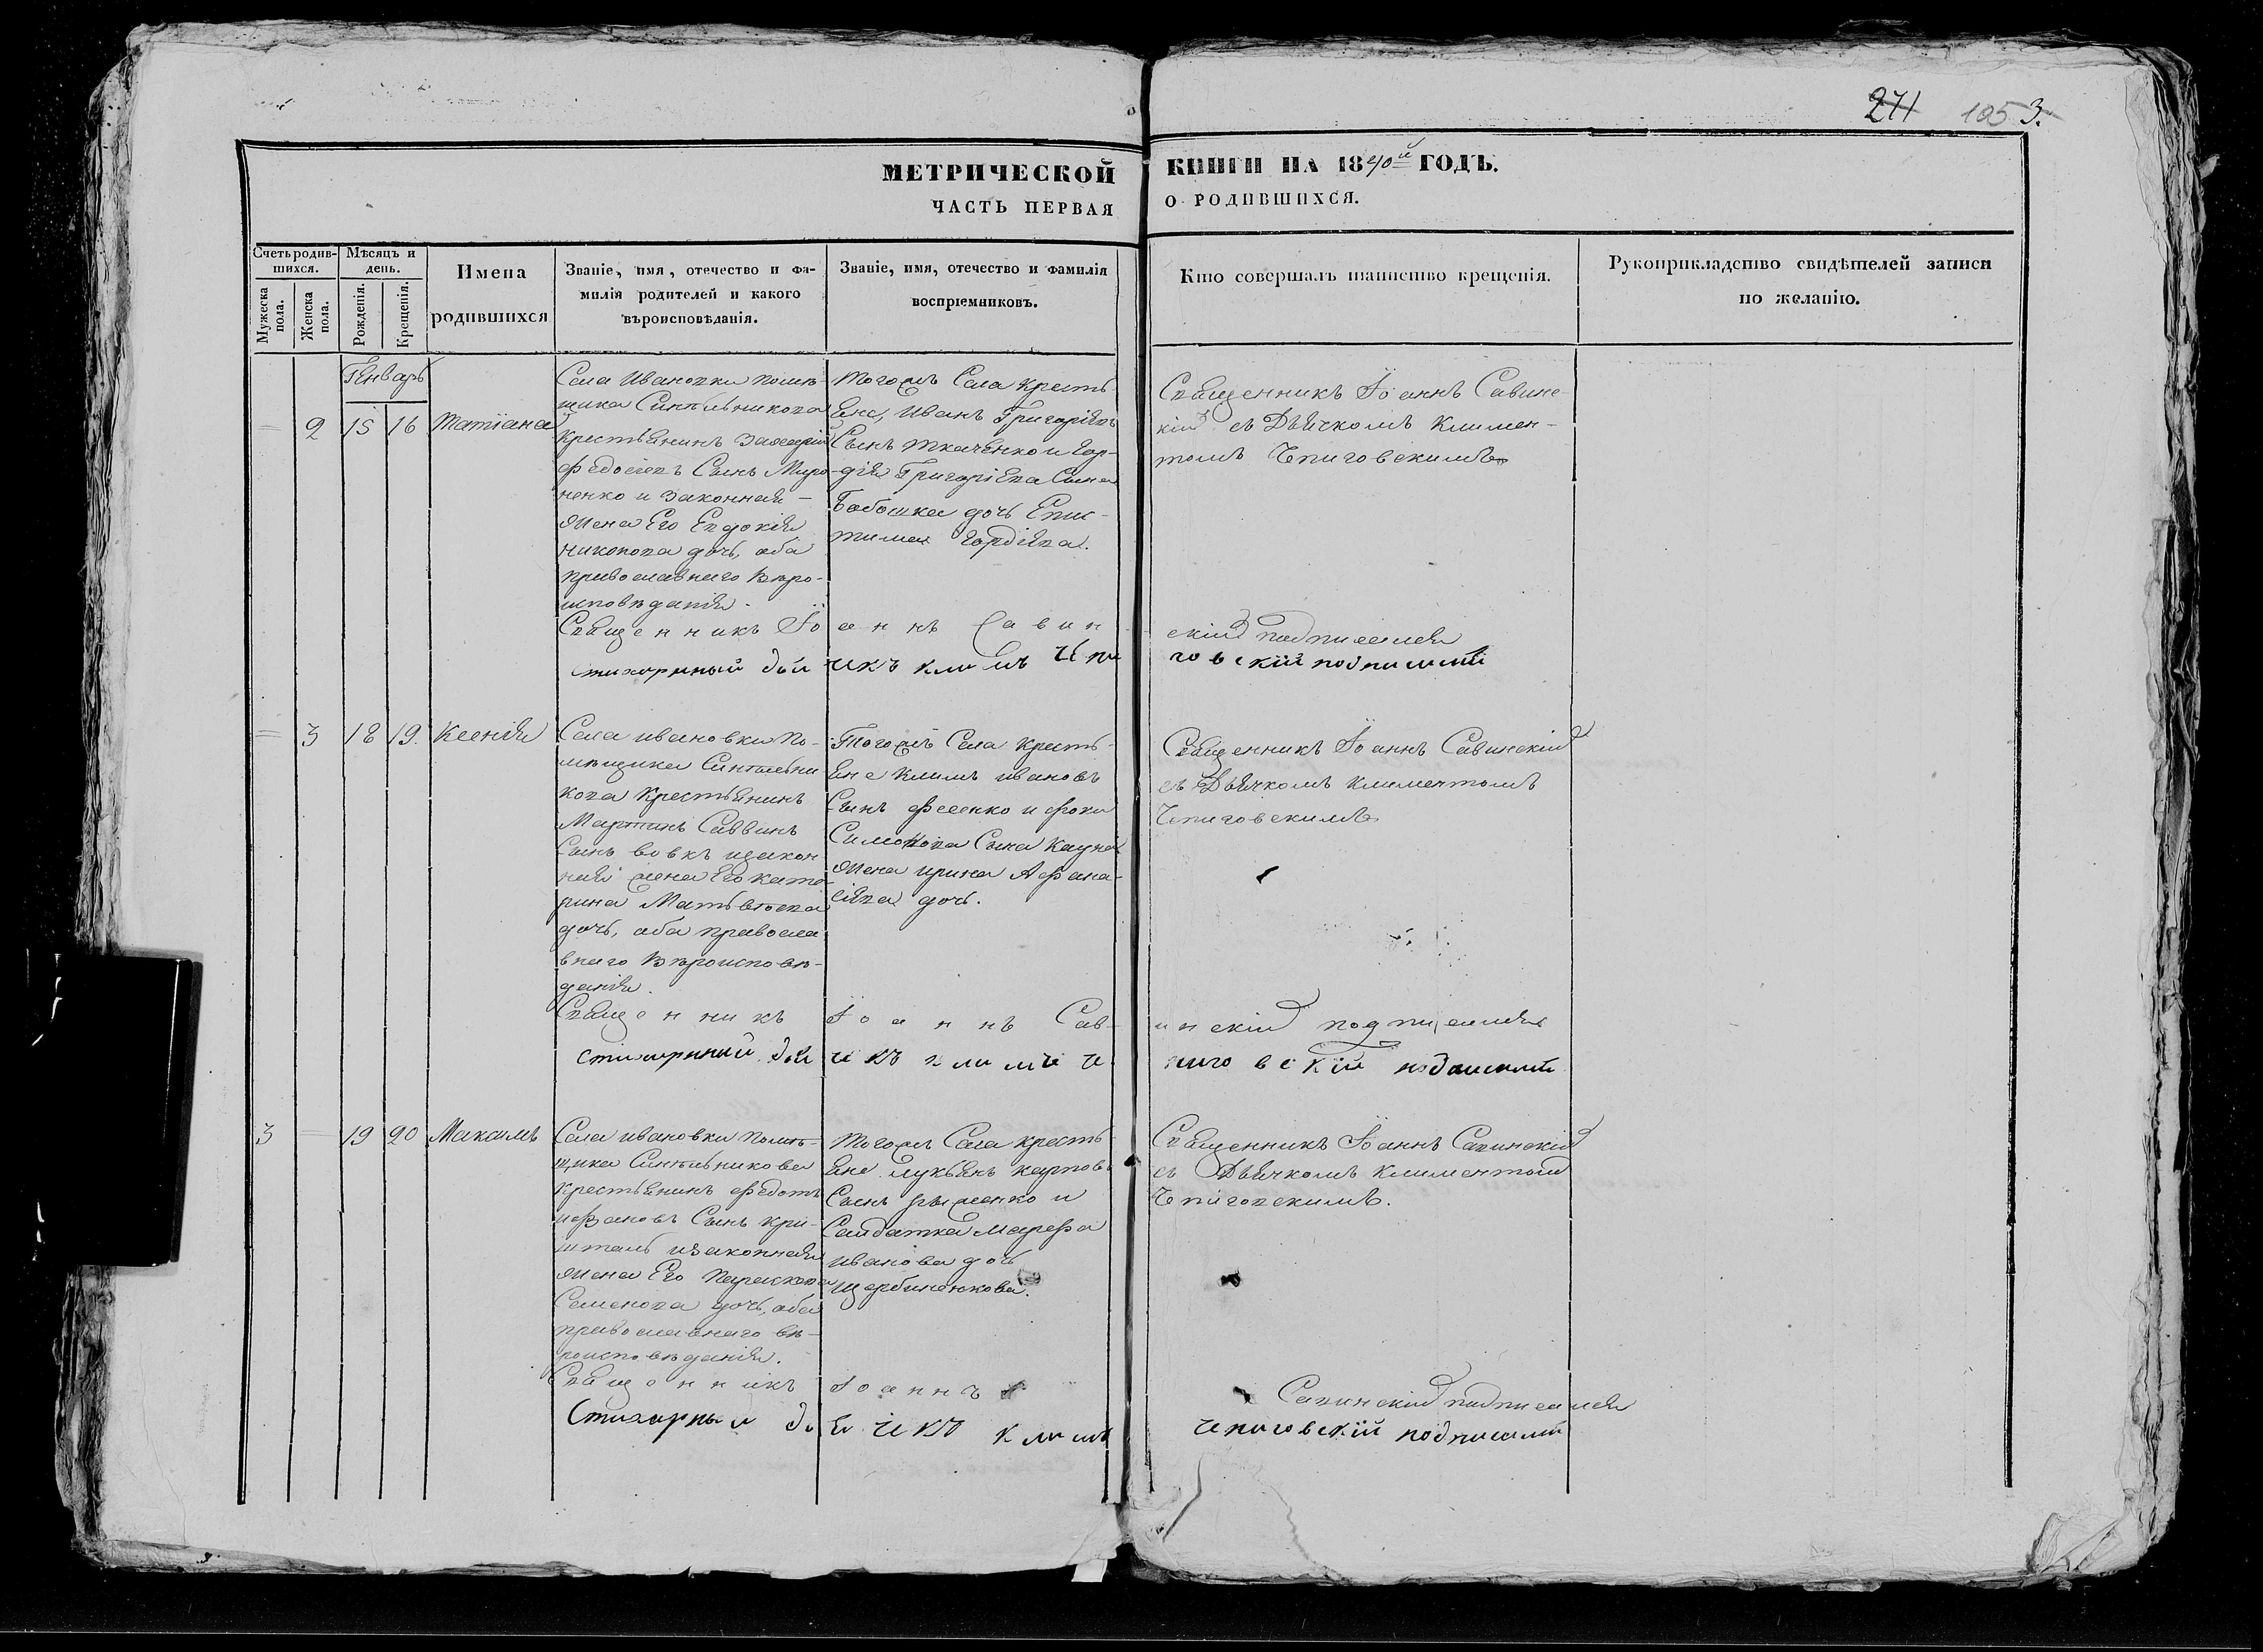 271 105 3.
МЕТРИЧЕСКОЙ КНИГИ НА 1840й ГОДЪ.
ЧАСТЬ ПЕРВАЯ О РОДИВШИХСЯ.
Счетъ родившихся.
Мужеска пола.
Женска пола.
Мѣсяцъ и день.
Рожденія.
Крещенія.
Имена
родившихся
Званіе, имя, отечество и фа-
милія родителей и какого
вѣроисповѣданія.
Званіе, имя, отечество и фамилія
воспріемниковъ.
Кто совершалъ таинство крещенія.
Рукоприкладство свидѣтелей записи
по желанію.
Генварь
2 15 16 Татіана
Села Ивановки помѣ-
щика Синѣльникова
крестьянинъ Захарій
Федосіевъ Сынъ Миро-
ненко и законная
жена Его Евдокія
никонова дочь, оба
православнаго вѣро-
исповѣданія.
тогожъ Села кресть
яне, Иванъ Григоріевъ
Сынъ ткаченко и Гор-
дія Григоріева Сына
Бабошка дочь Епис-
тимея Гордіева.
Священникъ Іоаннъ Савинс-
кій съ Дьячкомъ Климен-
томъ Чпиговскимъ
Священникъ Іоаннъ Савинскій подписался
Стихарный дьячикъ климъ Чпиговскій подписался
3 18 19. Ксенія
Села ивановки по-
мѣщика Синѣльни
кова крестьянинъ
Мартинъ Саввинъ
Сынъ вовкъ изакон
ная жена Его кате-
рина Матвѣева
дочь, оба правосла
внаго вѣроисповѣ-
данія.
Тогожъ Села кресть-
яне климъ ивановъ
Сынъ Фесенко и фоки
Симонова Сына
жена ирина Афана-
сіева дочь.
Священникъ Іоаннъ Савинскій
съ Дьячкомъ климентомъ
Чепиговскимъ
Священникъ Іоаннъ Савинскій подписался
Стихарный дьячикъ климъ чпиговскій подписался
3 19 20 Максимъ
Села ивановки помѣ-
щика Синѣльникова
крестьянинъ федотъ
Сынъ кри-
шталь изаконная
жена Его Параскева
Семенова дочь, оба
православнаго вѣ-
роисповѣданія.
тогожъ Села кресть
яне лукьянъ карповъ
Сынъ и
Салдатка Марфа
иванова дочь
щербиненкова.
Священникъ Іоаннъ Савинскій
съ Дьячкомъ климентомъ
Чпиговскимъ.
Священникъ Іоаннъ Савинскій подписался
Стихарный дьячикъ климъ чпиговскій подписался